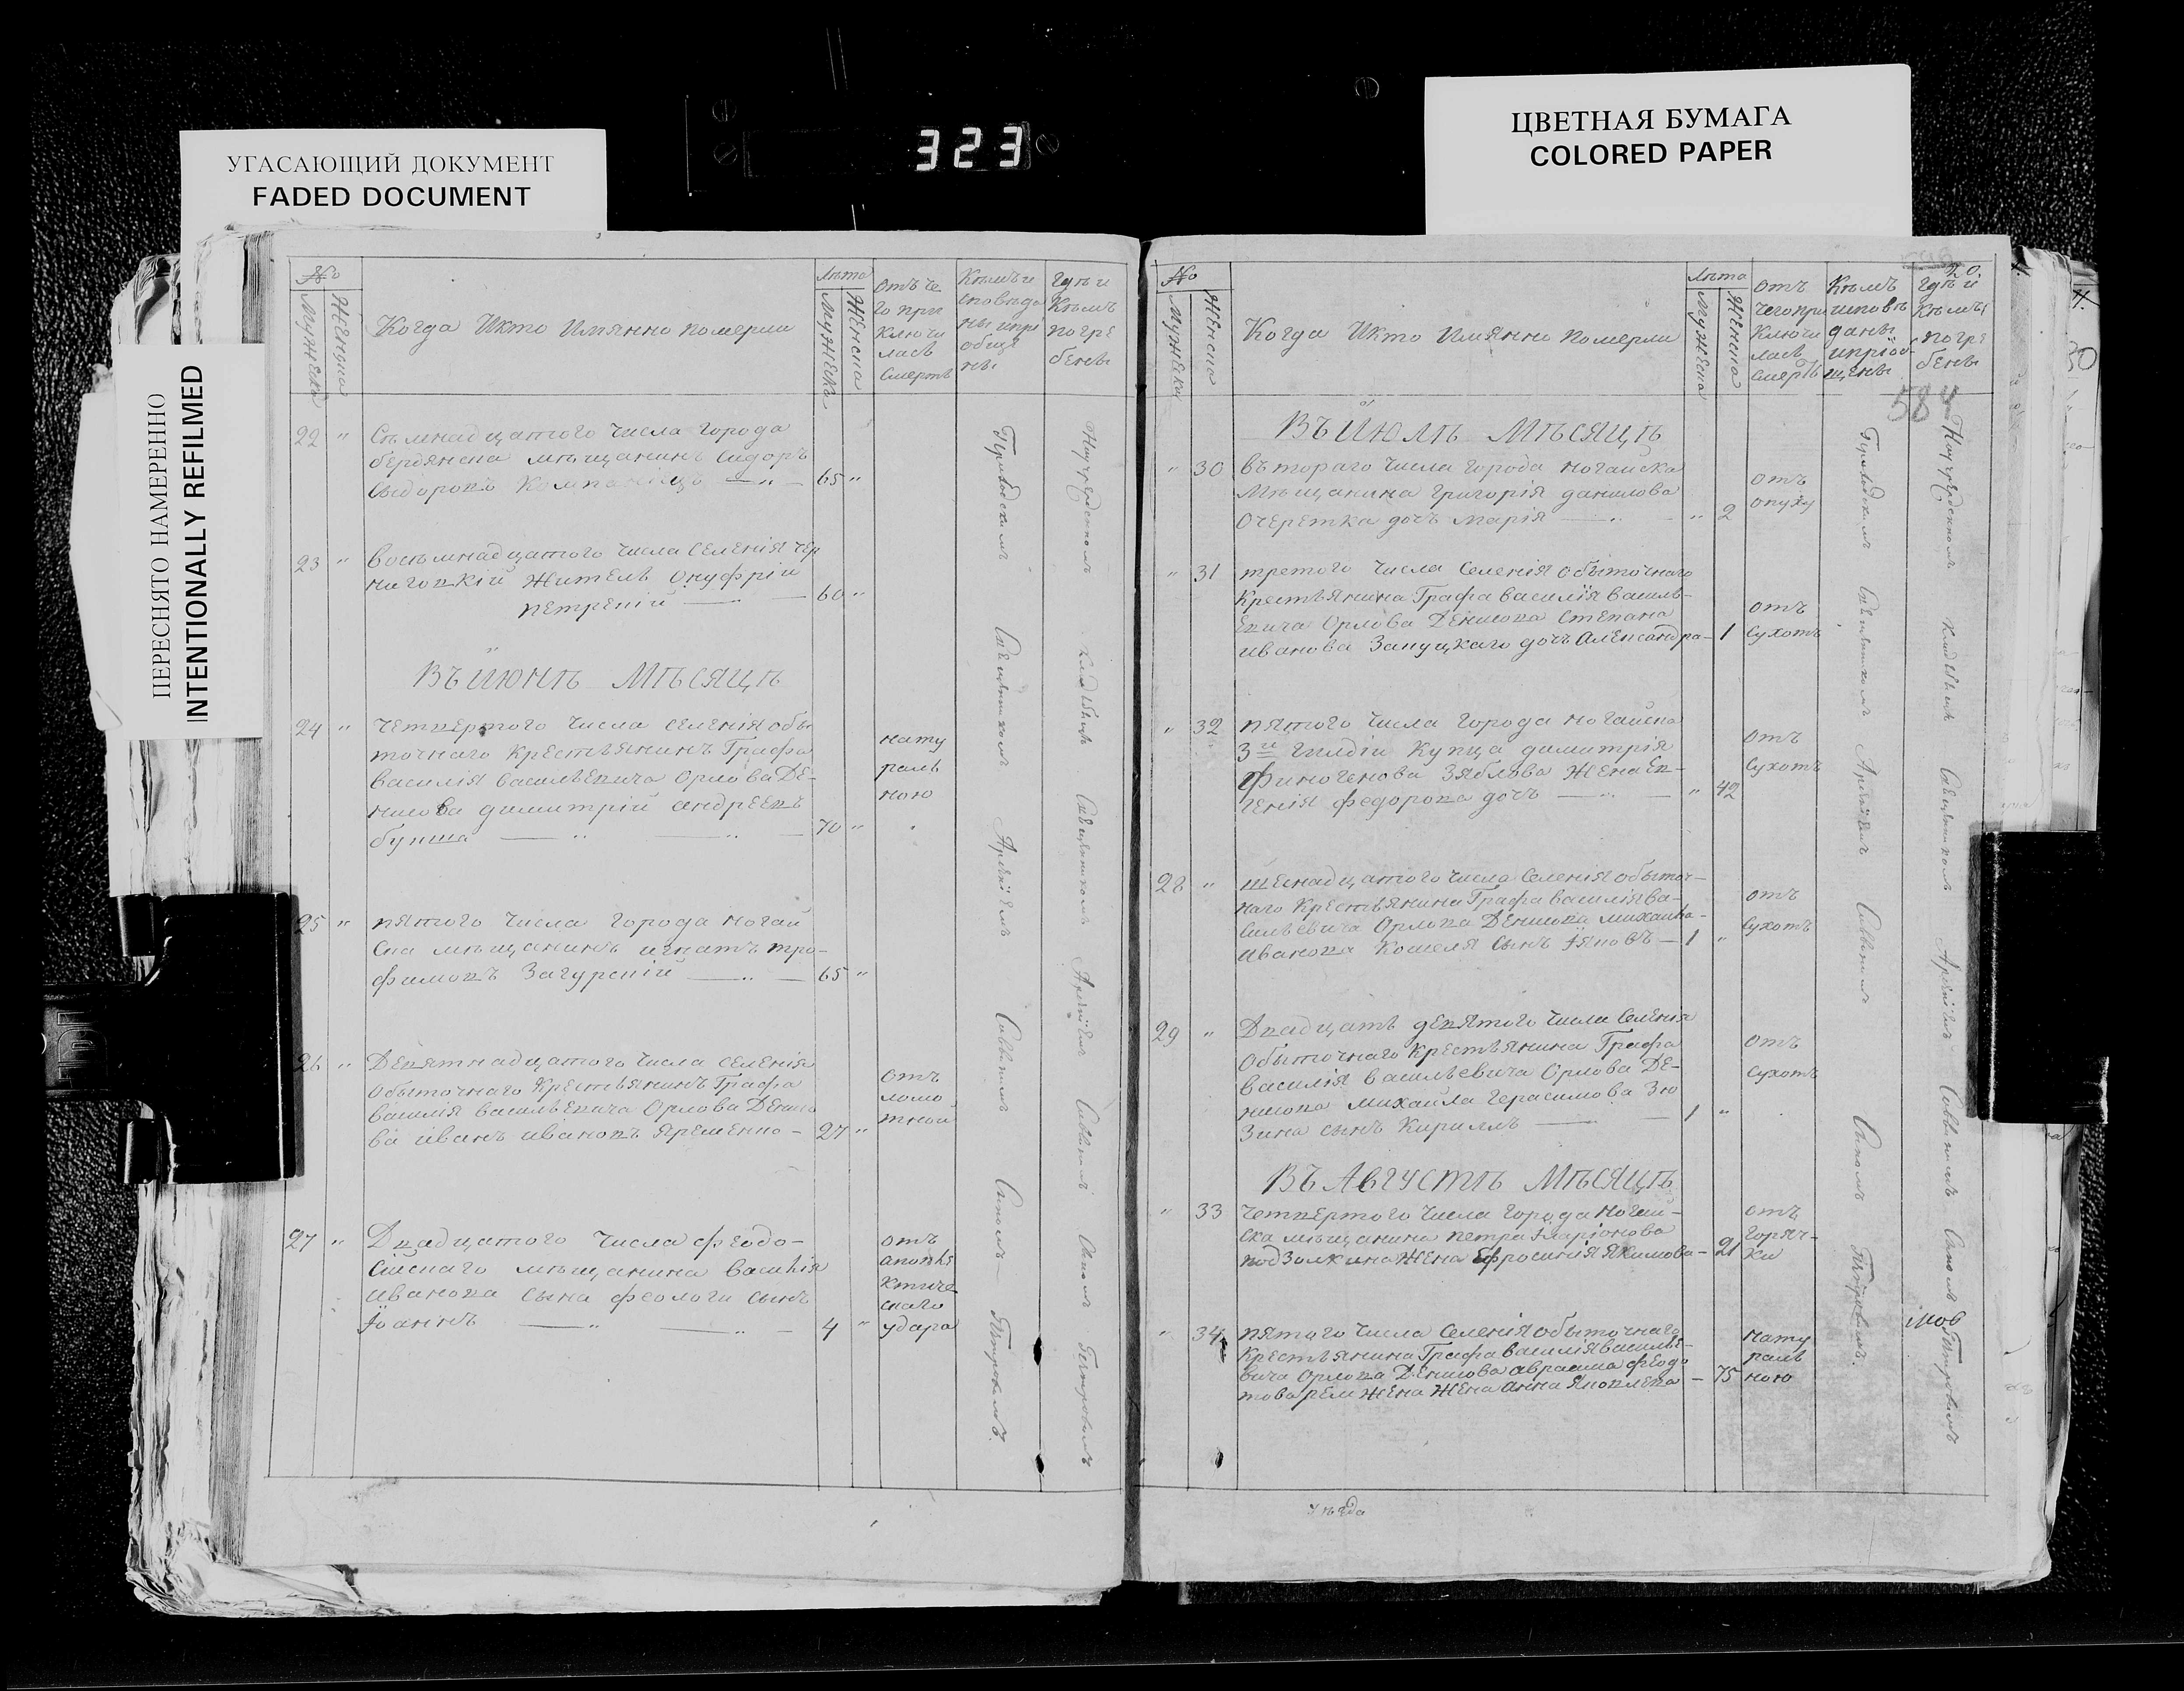 323
УГАСАЮЩИЙ ДОКУМЕНТ
FADED DOCUMENT
ЦВЕТНАЯ БУМАГА
COLORED PAPER
ПЕРЕСНЯТО НАМЕРЕННО
INTENTIONALLY REFILMED
№
Мужеска
Женска
Когда Икто Имянно померли
Лѣта
Мужеска
Женска
отъ че
го при
ключи
лась
смерть
Кѣмъ и
сповѣда
ны ипрі
обще
ны
Гдѣ и
Кѣмъ
погре
бены
22 " Сѣмнадцатого числа города
бердянска мѣщанинъ Сидоръ
65 "
23 " восѣмнадцатого числа селенія чер
ниговкій житель онуфрій
петреній 60 "
Въ Июнѣ Мѣсяцѣ
24 " четвертого числа селенія обы
точнаго крестьянинъ Графа
василія васильевича орлова Де-
нисова димитрій андреевъ
70 "
нату
раль
ною
25 " пятого числа города ногай
ска мѣщанинъ игнатъ тро-
фимовъ Загурскій 65 "
26 " Девятнадцатого числа селенія
обыточнаго крестьянинъ Графа
василія васильевича Орлова Денисо
ва иванъ ивановъ Яременко - 27 "
отъ
ломо
тной
27 " Двадцатого числа феодо-
сійскаго мѣщанина василія
иванова сына феологи сынъ
Іоаннъ 4 "
отъ
апопле
ктиче
скаго
удара
Приходскимъ Священникомъ Арсеніемъ Саввинымъ Сыномъ Петровымъ.
№
Мужеска
Женска
Когда Икто Имянно померли
Лѣта
Мужеска
Женска
отъ
чего при
ключи
лась
смерть
Кѣмъ
исповѣ
даны
ипріоб
щены
Гдѣ и
Кѣмъ
погре
бены
20.
58
Въ Июлѣ Мѣсяцѣ
" 30 втораго числа города ногайска
Мѣщанина григорія данилова
Очеретка дочь марія " 2
отъ
опуху
" 31 третого числа Селенія обыточнаго
крестьянина Графа василія василь-
евича Орлова Денисова Степана
иванова дочь Александра - 1
отъ
сухотъ
" 32 пятого числа города ногайска
3й Гилдіи купца димитрія
финогенова Зяблова жена Ев-
генія федорова дочь " 42
отъ
сухотъ
28 " шеснадцатого числа Селенія обыточ-
наго крестьянина Графа василія ва-
сильевича Орлова Денисова михаила
иванова Кошеля сынъ Іяковъ - 1 "
отъ
сухотъ
29 " Двадцать девятого числа Селенія
обыточнаго крестьянина Графа
василія васильевича Орлова Де-
нисова михаила герасимова Зю
зина сынъ Кириллъ 1 "
отъ
сухотъ
Въ Августѣ Мѣсяцѣ
" 33 четвертого числа города ногай-
ска мѣщанина петра Іларіонова
подзолкина жена Ефросинія Якимова - 21
отъ
горяч-
ки
" 34 пятого числа Селенія обыточнаго
крестьянина Графа василія василье-
вича Орлова Денисова авраама феодо
това жена жена анна Яковлева - 75
нату
раль
ною
Приходскимъ Священникомъ Арсеніемъ Саввинымъ Сыномъ Петровымъ.